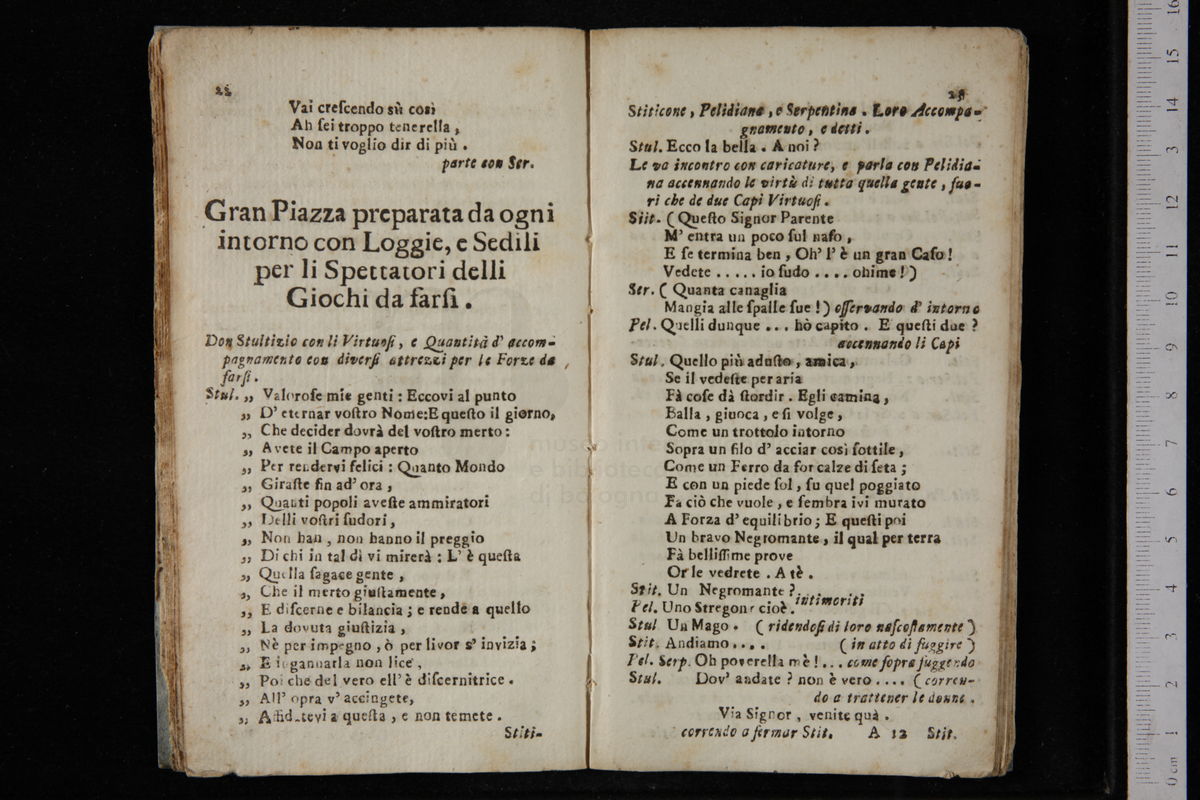 28
Vai creſcendo sù così
Ah ſei troppo tenerella,
Non ti voglio dir di più.
parte con Ser.
Gran Piazza preparata da ogni
intorno con Loggie, e Sedili
per li Spettatori delli
Giochi da farſi.
Don Stultizio con li Virtuoſi, e Quantità d' accom-
pagnamento con diverſi attrezzi per le Forze da
farſi.
Stul. „ Valorofe mie genti: Eccovi al punto
„ D' eternar voſtro Nome: E queſto il giorno,
„ Che decider dovrà del voſtro merto:
„ Avete il Campo aperto
„ Per rendervi felici: Quanto Mondo
„ Giraſte fin ad' ora,
„ Quanti popoli aveſte ammiratori
„ Delli voſtri ſudori,
„ Non han, non hanno il preggio
„ Di chi in tal dì vi mirerà: L' è queſta
„ Quella ſagace gente,
„ Che il merto giuſtamente,
„ E diſcerne e bilancia; e rende a quello
„ La dovuta giuſtizia,
„ Nè per impegno, ò per livor s' invizia;
„ E ingannarla non lice,
„ Poi che del vero ell' è diſcernitrice.
„ All' opra v' accingete,
„ Affidatevi a queſta, e non temete.
Stiti-
Stiticone, Pelidiana, e Serpentina. Loro Accompa-
gnamento, e detti.
Stul. Ecco la bella. A noi?
Le va incontro con caricature, e parla con Pelidia-
na accennando le virtù di tutta quella gente, fuo-
ri che de due Capi Virtuoſi.
Stit. (Queſto Signor Parente
M' entra un poco ſul naſo,
E ſe termina ben, Oh' l' è un gran Caſo!
Vedete ..... io ſudo .... ohime!)
Ser. (Quanta canaglia
Mangia alle ſpalle ſue!) oſſervando d' intorno
Pel. Quelli dunque ... hò capito. E queſti due?
accennando li Capi
Stul. Quello più aduſto, amica,
Se il vedeſte per aria
Fà coſe dà ſtordir. Egli camina,
Balla, giuoca, e ſi volge,
Come un trottolo intorno
Sopra un filo d' acciar così ſottile,
Come un Ferro da for calze di ſeta;
E con un piede ſol, ſu quel poggiato
Fa ciò che vuole, e ſembra ivi murato
A Forza d' equilibrio; E queſti poi
Un bravo Negromante, il qual per terra
Fà belliſſime prove
Or le vedrete. A tè.
Stit. Un Negromante?
Pel. Uno Stregone cioè. intimoriti
Stul Un Mago. (ridendoſi di loro naſcoſtamente)
Stit. Andiamo.... (in atto di fuggire)
Pel. Serp. Oh poverella mè!... come ſopra fuggendo
Stul. Dov' andate? non è vero .... (corren-
do a trattener le donne.
Via Signor, venite quà.
correndo a fermar Stit. A 12 Stit.
museo inte
e biblioteca
di bologna